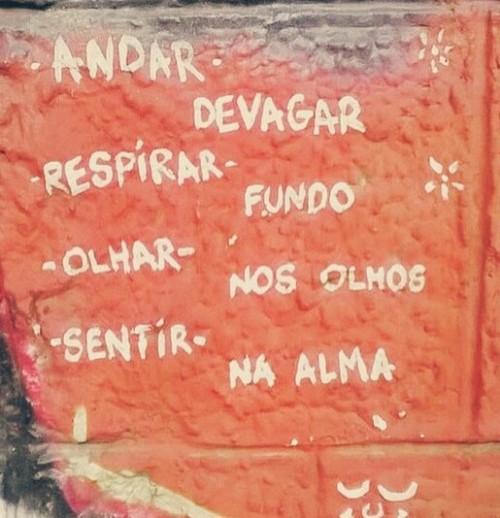 ·ANDAR·
DEVAGAR
-RESPÍRAR-
FUNDO
-OLHAR-
NOS OLHOS
-SENTÍR-
NA ALMA